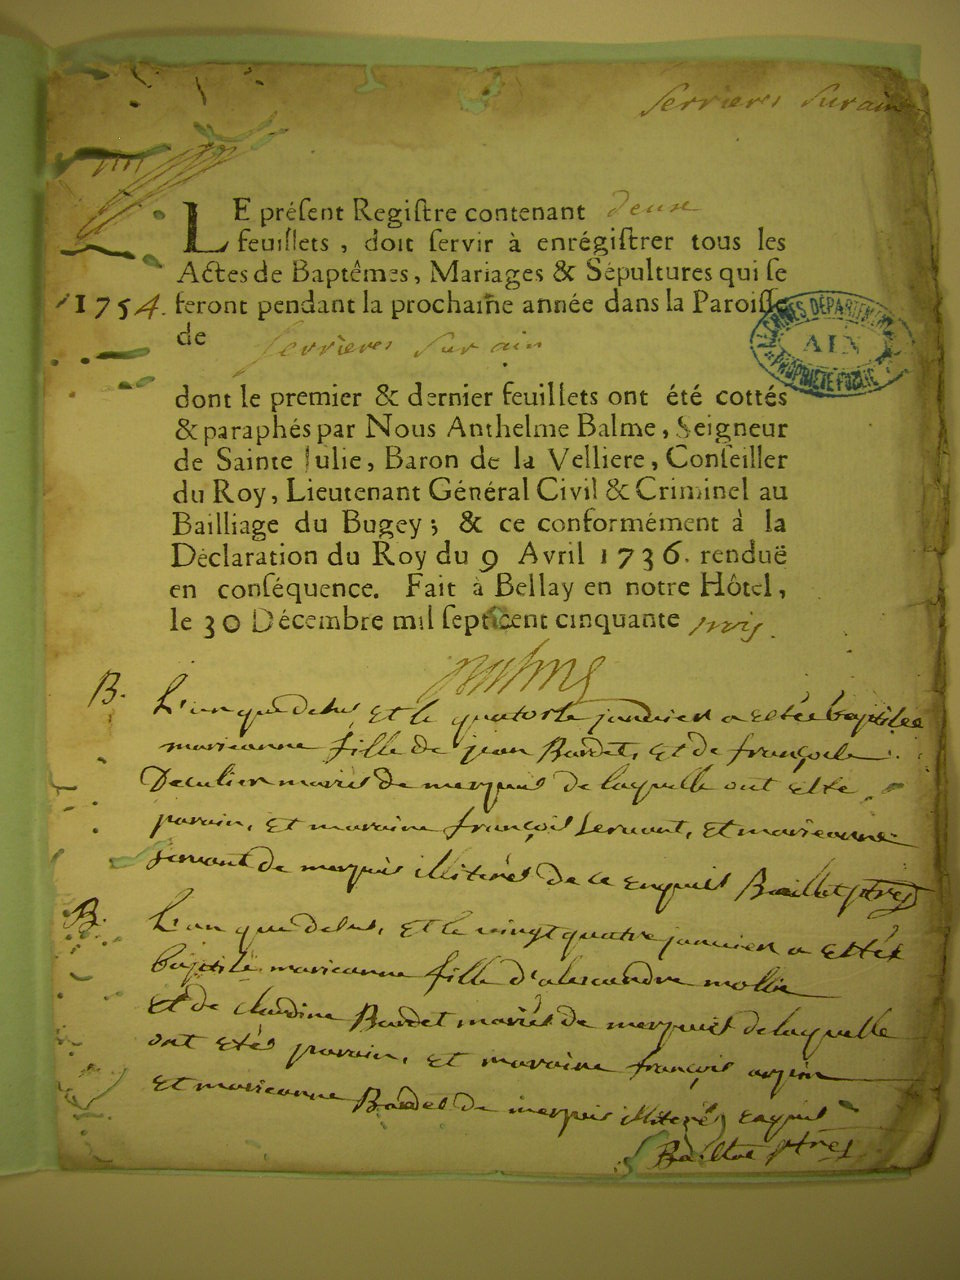 Serrieres Sur ain
LE préſent Regiſtre contenant deux
feuillets, doit ſervir à enrégiſtrer tous les
Actes de Baptêmes, Mariages & Sépultures qui ſe
1754. feront pendant la prochaine année dans la Paroiſſe
de Serrieres Sur ain
ARCHIVES DÉPARTEMENTALES
AIN
PROPRIÉTÉ PUBLIQUE
dont le premier & dernier feuillets ont été cottés
& paraphés par Nous Anthelme Balme, Seigneur
de Sainte Julie, Baron de la Velliere, Conſeiller
du Roy, Lieutenant Général Civil & Criminel au
Bailliage du Bugey; & ce conformément à la
Déclaration du Roy du 9 Avril 1736. renduë
en conſéquence. Fait à Bellay en notre Hôtel,
le 30 Décembre mil ſept cent cinquante trois.
Balme
B. L'an que desus, et le quatorse janvier a estée baptisee
marieanne fille de jean Bardet, et de françoise
mariés de merpuis de laquelle ont esté
parain, et maraine françois servant, et marieanne
servant de merpuis illiterés de ce enquis Baillet ptre
B. L'an que desus, et le vingt quatre janvier a estée
baptisé marieanne fille d'alexandre mollie
et de claudine Bardet mariés de merpuis de laquelle
ont etés parain, et maraine françois
et marieanne Bardet de merpuis illiterés enquis
Baillet ptre